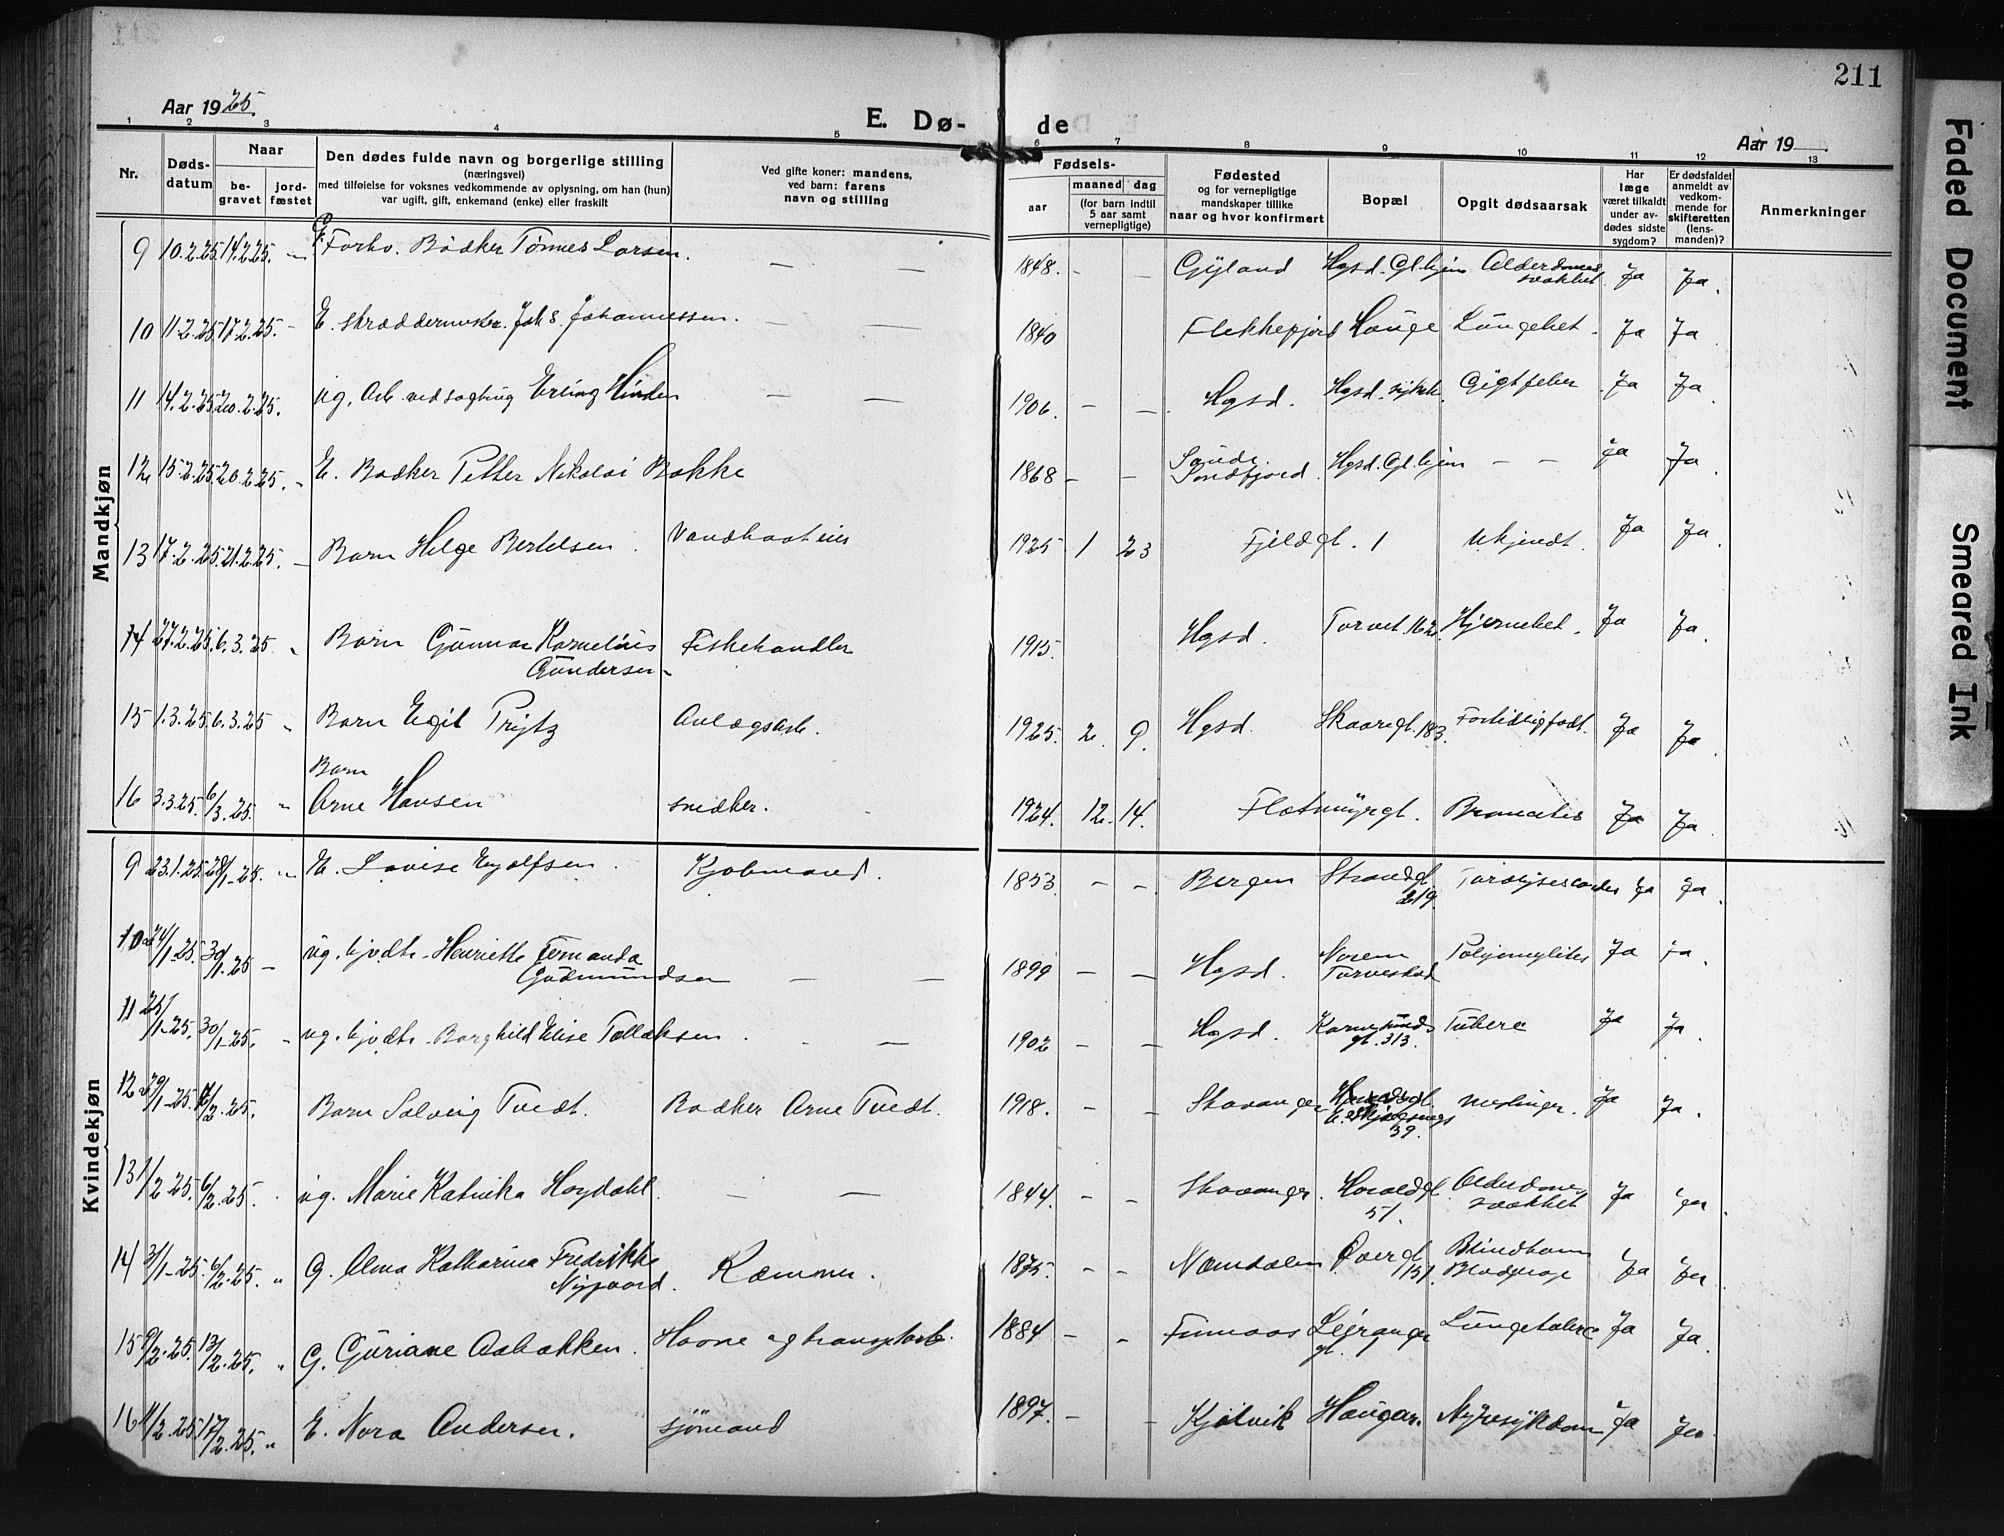 211
Aar 1925.
E. Dø-
de
Aar 19
1 2 3 4 5 6 7 8 9 10 11 12 13
Nr.
Døds-
datum
Naar
be-
gravet
jord-
fæstet
Den dødes fulde navn og borgerlige stilling
(næringsvei)
med tilføielse for voksnes vedkommende av oplysning, om han (hun)
var ugift, gift, enkemand (enke) eller fraskilt
Ved gifte koner: mandens,
ved barn: farens
navn og stilling
Fødsels-
aar
maaned dag
(for barn indtil
5 aar samt
vernepligtige)
Fødested
og for vernepligtige
mandskaper tillike
naar og hvor konfirmert
Bopæl
Opgit dødsaarsak
Har
læge
været tilkaldt
under av-
dødes sidste
sygdom?
Er dødsfaldet
anmeldt av
vedkom-
mende for
skifteretten
(lens-
manden)?
Anmerkninger
Mandkjøn
9 10.2.25 14.2.25. G. Forhv. Bödker Tönnes Larsen. — — 1848. - - Gyland Hgsd. Gl.hjem Alderdoms
svakhet. Ja Ja.
10 11.2.25 17.2.25. - E. skræddermester. Joh s. Johannessen. — — 1840 Flekkefjord Hauge Lungebet. Ja Ja
11 14.2.25 20.2.25. ug. Arb. ved sagbrug Erling Hinden — — 1906. - - Hgsd. Hgsd. sykeh. Gigtfeber Ja Ja
12 15.2.25 20.2.25. - E. Bödker Petter Nikolai Bakke 1868 - - Söndfjord. Hgsd. Gl.hjem — — Ja Ja
13 17.2.25 21.2.25. - Barn Helge Bertelsen. 1925 1 23 Fjeldgt. 1 Ukjendt. Ja Ja.
14 27.2.25. 6.3.25 Barn Gunnar Kornelius
Gundersen - Fiskehandler 1915. Hgsd. Torvet 162 Hjernebet. Ja Ja.
15 1.3.25. 6.3.25 " Barn Egil Prytz Anlægsarb. 1925. 2. 9. Hgsd. Skaaregt. 183. Fortidlig födt. Ja Ja
16 3.3.25. 6/3.25. " Barn
Arne Hansen snedker. 1924. 12. 14. Flotmyrgt. Ja Ja.
Kvindekjøn
9 23.1.25. 28/1-25. E. Lovise Eyolfsen. Kjöbmand. 1853. - - Bergen Strandgt
219. Ja Ja.
10 24/1-25. 30/1.25 - ug. hjvdtr. Henriette Fernanda
Gudmundsen — — 1899 - - Hgsd. Norem
Torvestad Poliomylites Ja Ja.
11 25/1-25. 30/1-25. ug. hjvdtr. Borghild Elise Tollaksen. — 1902 - - Hgsd. Karmsunds
gt. 313. Tuberc Ja Ja.
12 29/1-25. /2.25. Barn Solveig Tvedt. Bödker Arne Tvedt. 1918. - - Stavanger
39. Meslinger. Ja Ja.
13 1/2 25. 6/2.25. ug. Marie Katrika Høydahl. — — 1844. - - Stavanger. Haraldgt
51. Alderdoms
svakhet Ja Ja.
14 31/1-25. 6/2.25. " G. Alma Katharina Fredrikke
Nygaard. Kæmner. 1875. - - Namdalen Övergt
151. Blindtarm
Ja Ja
15 9/2.25. 13/2.25. " G. Guriane Aabakken. Havne og transportarb. 1884 - - Finnaas Leiranger
gt. Lungetuberc Ja Ja.
16 11/2.25 17/2.25. " E. Nora Andersen. sjömand 1897. - - Kjölvik Haugar. Nyresykdom Ja Ja.
Faded Document
Smeared Ink